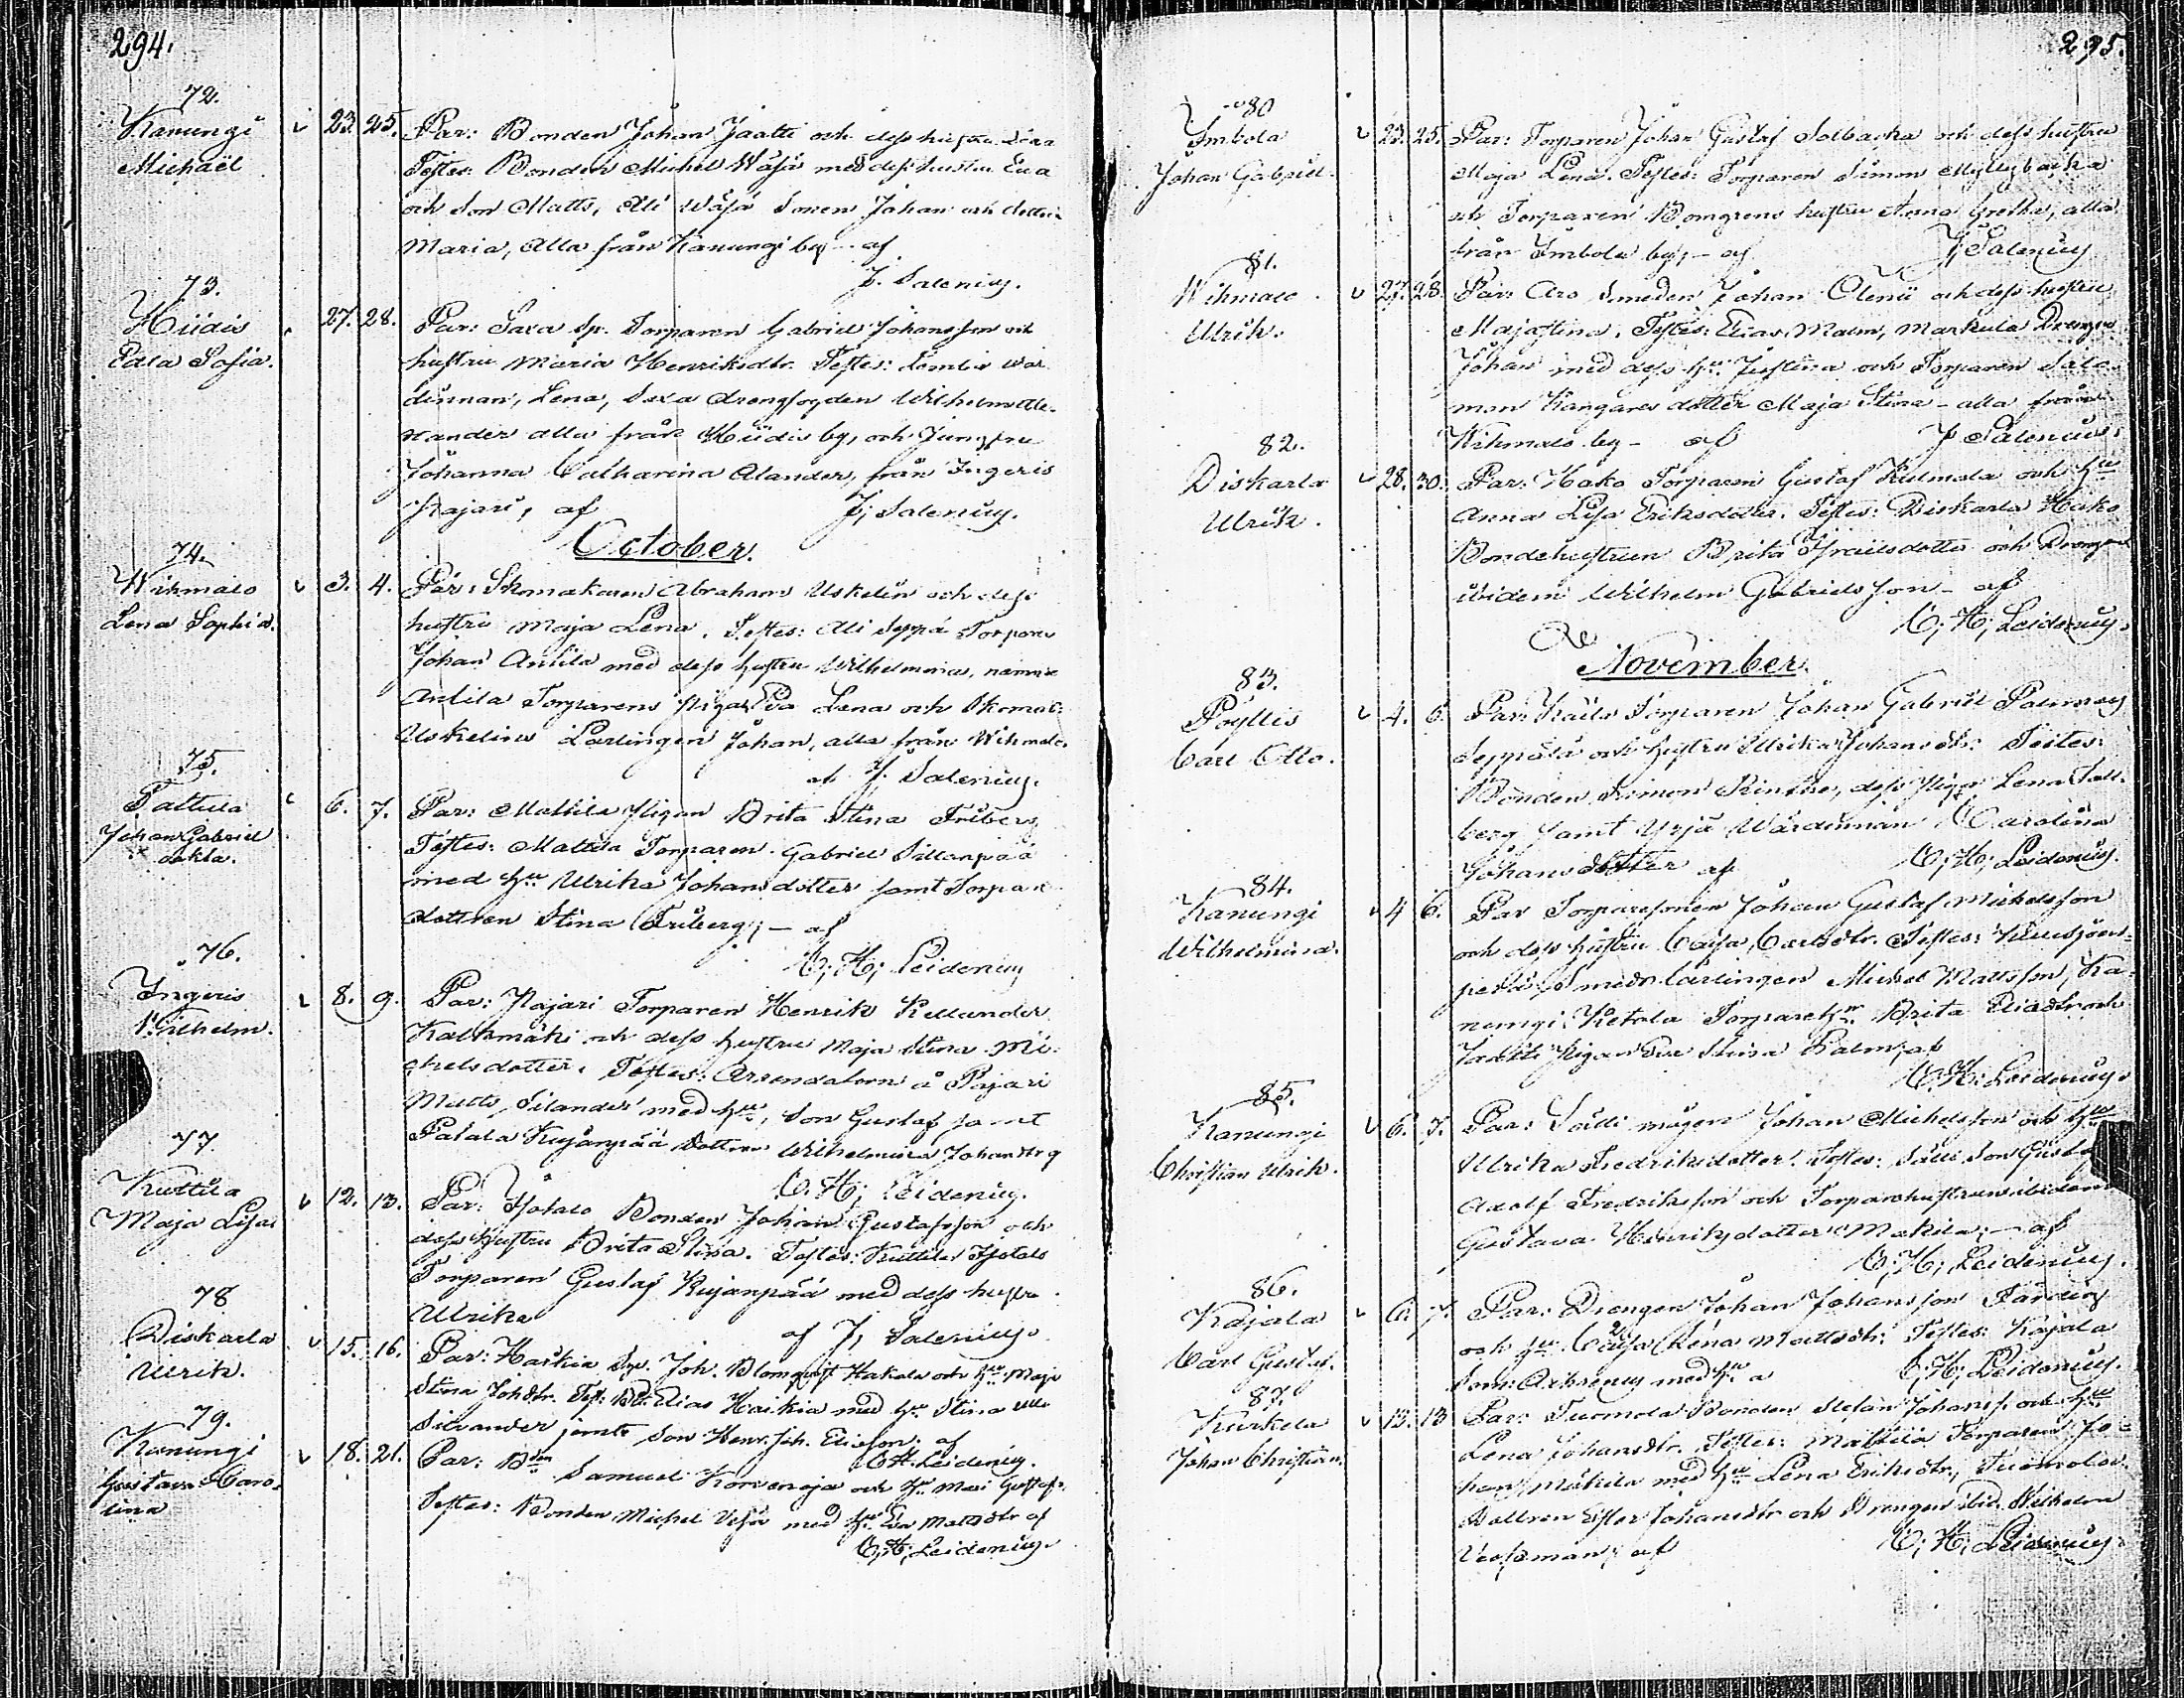 294.
72.
Kanungi
Michaël
23. 25. Par: Bonden Johan Jaatti och dess hustru Lisa
Testes: Bonden Michel Wäjä med dess hustru Eva
och Son Matts, Ali Wäjä Sonen Johan och dottren
Maria, Alla från Kanungi by - af
J. Salenius.
73.
Hiidis
Edla Sofia.
27. 28. Par: Saxa Sp. Torparen Gabriel Johansson och
hustru Maria Henriksdtr. Testes: Jembis Wär
dinnan, Lena, Saxa drengfogden Wilhelm Ale-
nander alla från Hiidis by, och Jungfru
Johanna Catharina Alander, från Ingeris
Pajari, af J. Salenius.
October.
74.
Wihmalo
Lena Sophia.
3. 4. Par: Skomakaren Abraham Uskelin och dess
hustru Maja Lena. Testes: Ali Seppä Torparen
Johan Anlila med dess hustru Wilhelmina, namne
Anlila Torparens Pigan Eva Lena och Skomak:
Uskelins Lärlingen Johan, alla från Wihmalo
af J. Salenius.
75.
Pattula
Johan Gabriel
oäkta.
6. 7. Par: Mattila Pigan Brita Stina Friberg
Testes: Mattila Torparen Gabriel Sillanpää
med hu Ulrika Johansdotter samt Torpare
dottren Stina Friberg; - af
C. H. Leidenius
76.
Ingeris
Wilhelm.
8. 9. Par: Pajari Torparen Henrik Kellander
Kalkamäki och dess hustru Maja Stina Mi-
chelsdotter. Testes: Arrendatorn å Pajari
Matts Silander med hu, Son Gustaf samt
Palala Kujanpää Dottren Wilhelmina Johansdtr
C. H. Leidenius.
77.
Kuttila
Maja Lisa
12. 13. Par: Isotalo Bonden Johan Gustafsson och
dess hustru Brita Stina. Testes: Kuttila Isotalo
Torparen Gustaf Kujanpää med dess hustru
Ulrika af J. Salenius.
78
Diskarla
Ulrik.
15. 16. Par: Haikia Joh. Blomqvist Hakala och hu Maja
Stina Johdtr. Test: Bd. Elias Haikia med hu Stina
Silvander jemte Son Henr. Joh. Eliasson. af
C. H. Leidenius.
79.
Kanungi
Gustava Karo-
lina
18. 21. Par: Bden Samuel Korvenoja och hu Mari Gustafs.
Testes: Bonden Michel Wäjä med hu Eva Mattsdtr af
C. H. Leidenius.
295.
80
Imbola
Johan Gabriel.
23. 25. Par: Torparen Johan Gustaf Solbacka och dess hustru
Maja Lena. Testes: Torparen Simon Myllybacka
och Torparen Bomgrens hustru Anna Gretha, alla
från Imbola by, - af J. Salenius
81.
Wihmalo
Ulrik.
27. 28. Par: Aro Smeden Johan Olenii och dess hustru
Majastina. Testes: Elias Malm, Markula Drengen
Johan med dess hu Justina och Torparen Salo-
mon Kangares dotter Maja Stina - alla från
Wihmalo by - af J. Salenius.
82.
Diskarla
Ulrik.
28. 30. Par: Hako Torparen Gustaf Kulmala och hu
Anna Lisa Eriksdotter. Testes: Diskarla Hako
Bondehustrun Brita Israelsdotter och Drengen
ibidem Wilhelm Gabrielsson - af
C. H. Leidenius.
November.
83.
Pöylis
Carl Otto.
4. 6. Par: Torparen Johan Gabriel Palmroos
Seppälä och hustru Ulrika Johansdtr: Testes:
Bonden Simon Rintane, dess Pigan Lena Tall-
berg samt Yrjä Wärdinnan Carolina
Johansdotter af C. H. Leidenius.
84.
Kanungi
Wilhelmina.
4 6. Par Torparesonen Johan Gustaf Michelsson
och dess hustru Caisa Carlsdtr. Testes:
Smeds lärlingen Michel Mattsson, Ka-
nungi Ketola Torparehu Brita Eliædtr och
Jaatti Pigan Eva Stina Palm, af
C. H. Leidenius.
85.
Kanungi
Christian Ulrik.
6. 7. Par: Sälli mågen Johan Michelsson och hu
Ulrika Fredriksdotter. Testes: Sälli Son Gustaf
Adolf Fredriksson och Torparehustrun ibidem
Gustava Henriksdotter Mäkilä; - af
C. H. Leidenius.
86.
Kajala
Carl Gustaf.
6. 7. Par: Drengen Johan Johansson Färding
och hu Caisa Lena Mattsdtr: Testes: Kajala
med hu a C. H. Leidenius.
87.
Kurkela
Johan Christian.
13. 13 Par: Tuomola Bonden Stefan Johanss. och hu
Lena Johansdtr. Testes: Mattila Torparen Jo-
han Mäkilä med hu Lena Eriksdtr, Tuomola
Dottren Ester Johansdtr och Drengen ibid. Wilhelm
af C. H. Leidenius.